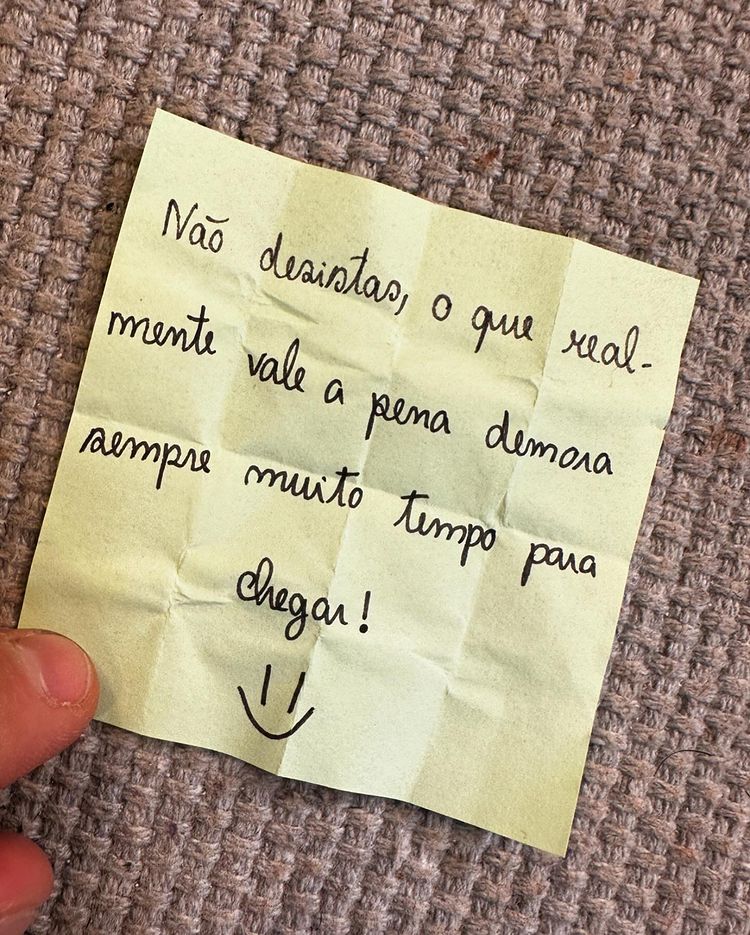 Não desistas, o que real-
mente vale a pena demora
sempre muito tempo para
chegar!